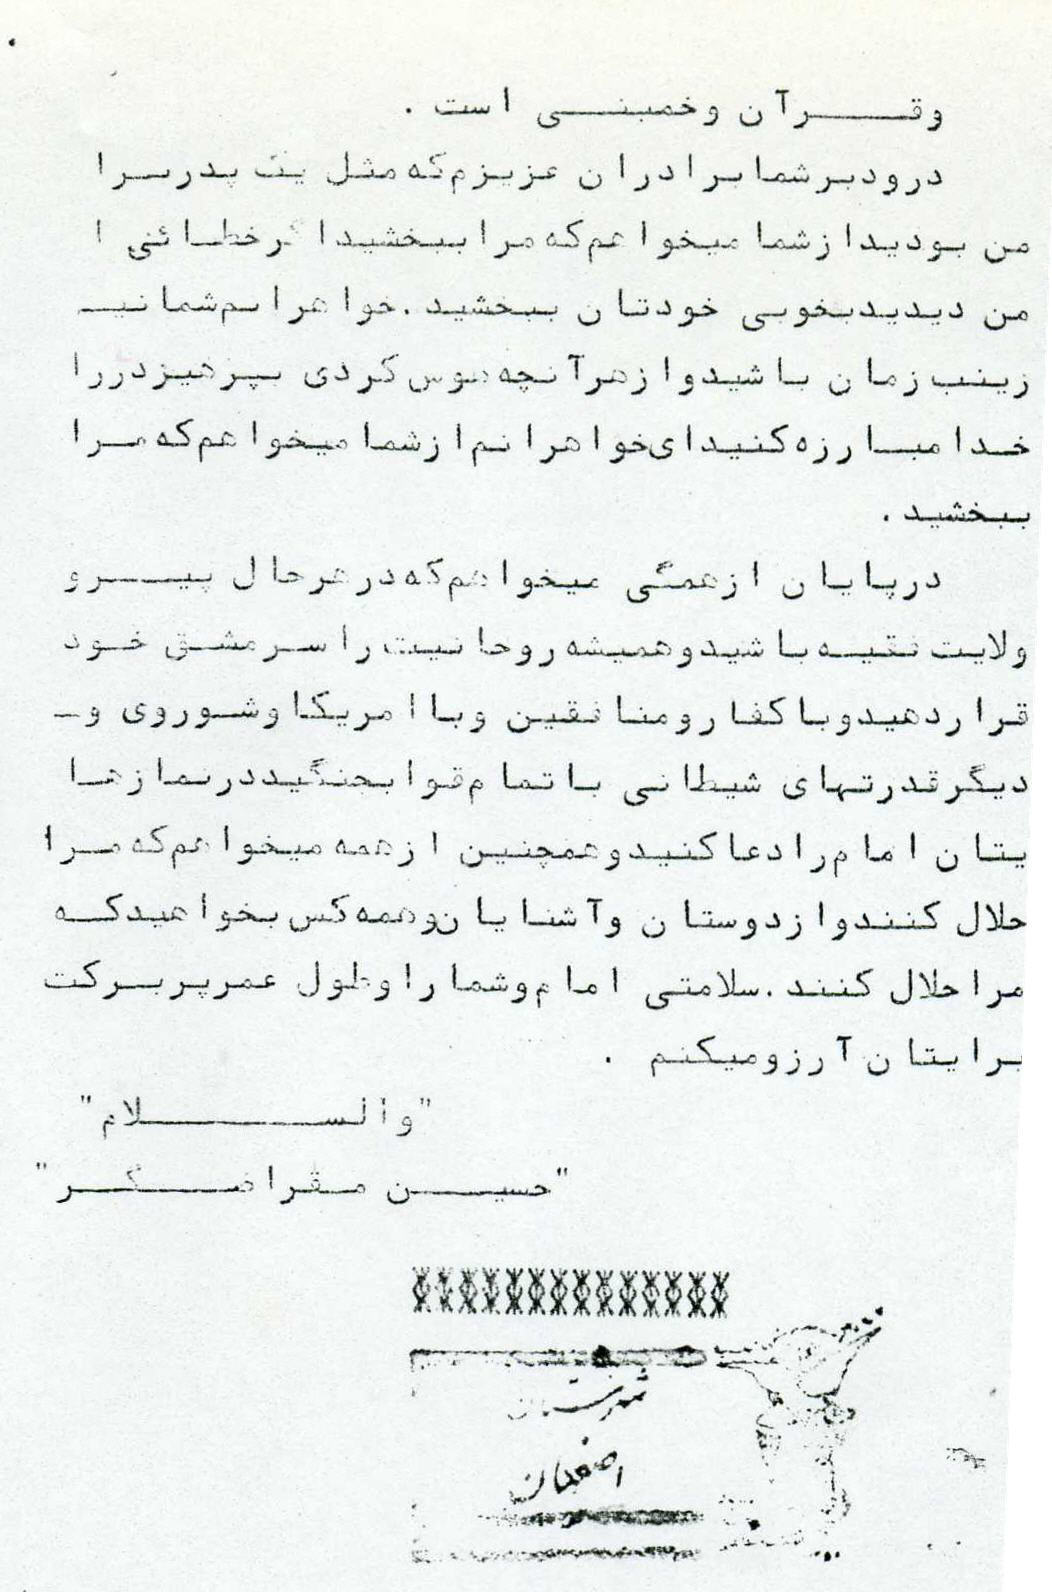 وقـــرآن وخمینـــی است .
درودبرشمابرادران عزیزم که مثل یک پدربـرا
من بودیدازشما میخواهم که مرا ببخشیداگرخطـائی ا
من دیدیدبخوبی خودتان ببخشید.خواهرانم شمانیـ
زینب زمان باشیدوازهرآنچه هوس کردی بپرهیزدررا
خدامبـارزه کنیدای خواهرانم ازشما میخواهم که مـرا
ببخشید .
درپایان ازهمگی میخواهم که درهرحال پیـــرو
ولایت فقیـه باشیدوهمیشه روحانیت راسـرمشـق خـود
قراردهیدوباکفارومنافقین وباامریکاوشـوروی و-
دیگرقدرتهای شیطانی باتمام قوابجنگیددرنمازهـا
یتان امام رادعاکنیدوهمچنین ازهمه میخواهم که مـرا
حلال کنندوازدوستان وآشنایان وهمه کس بخواهیدکـه
مراحلال کنند.سلامتی امام وشماراوطول عمرپربـرکت
برایتان آرزومیکنم .
"والســـــلام"
"حسیـــن مقراضـــگـــر"
شهرستان
اصفهان